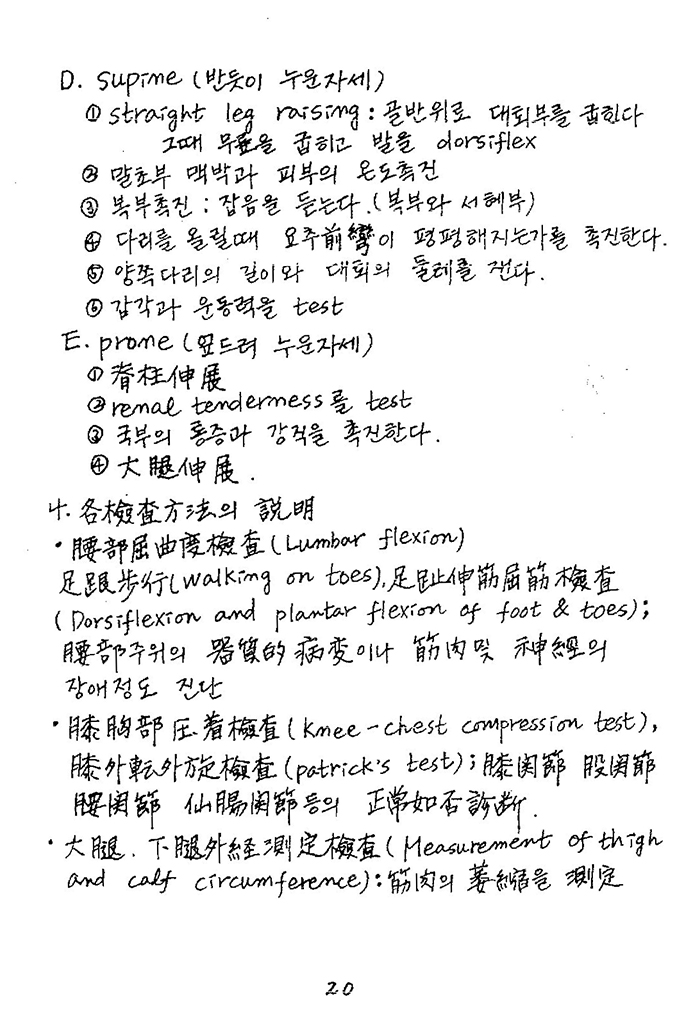 D. supine (반듯이 누운자세)
① straight leg raising : 골반위로 대퇴부를 굽힌다
그때 무릎을 굽히고 발을 dorsiflex
② 말초부 맥박과 피부의 온도촉진
③ 복부촉진 : 잡음을 듣는다. (복부와 서혜부)
④ 다리를 올릴때 요추前彎이 평평해지는가를 촉진한다.
⑤ 양쪽다리의 길이와 대퇴의 둘레를 잰다.
⑥ 감각과 운동력을 test
E. prone (엎드려 누운자세)
① 脊柱伸展
② renal tenderness를 test
③ 국부의 통증과 강직을 촉진한다.
④ 大腿伸展.
4. 各檢査方法의 説明
• 腰部屈曲度檢査 (Lumbar flexion)
足跟步行(Walking on toes), 足趾伸筋屈筋檢査
(Dorsiflexion and plantar flexion of foot & toes);
腰部주위의 器質的 病変이나 筋肉및 神經의
장애정도 진단
• 膝胸部圧着檢査 (Knee-chest compression test),
膝外転外旋檢査 (patrick's test); 膝関節 股関節
腰関節 仙腸関節등의 正常如否診断.
• 大腿. 下腿外経測定檢査 (Measurement of thigh
and calf circumference): 筋肉의 萎縮을 測定
20